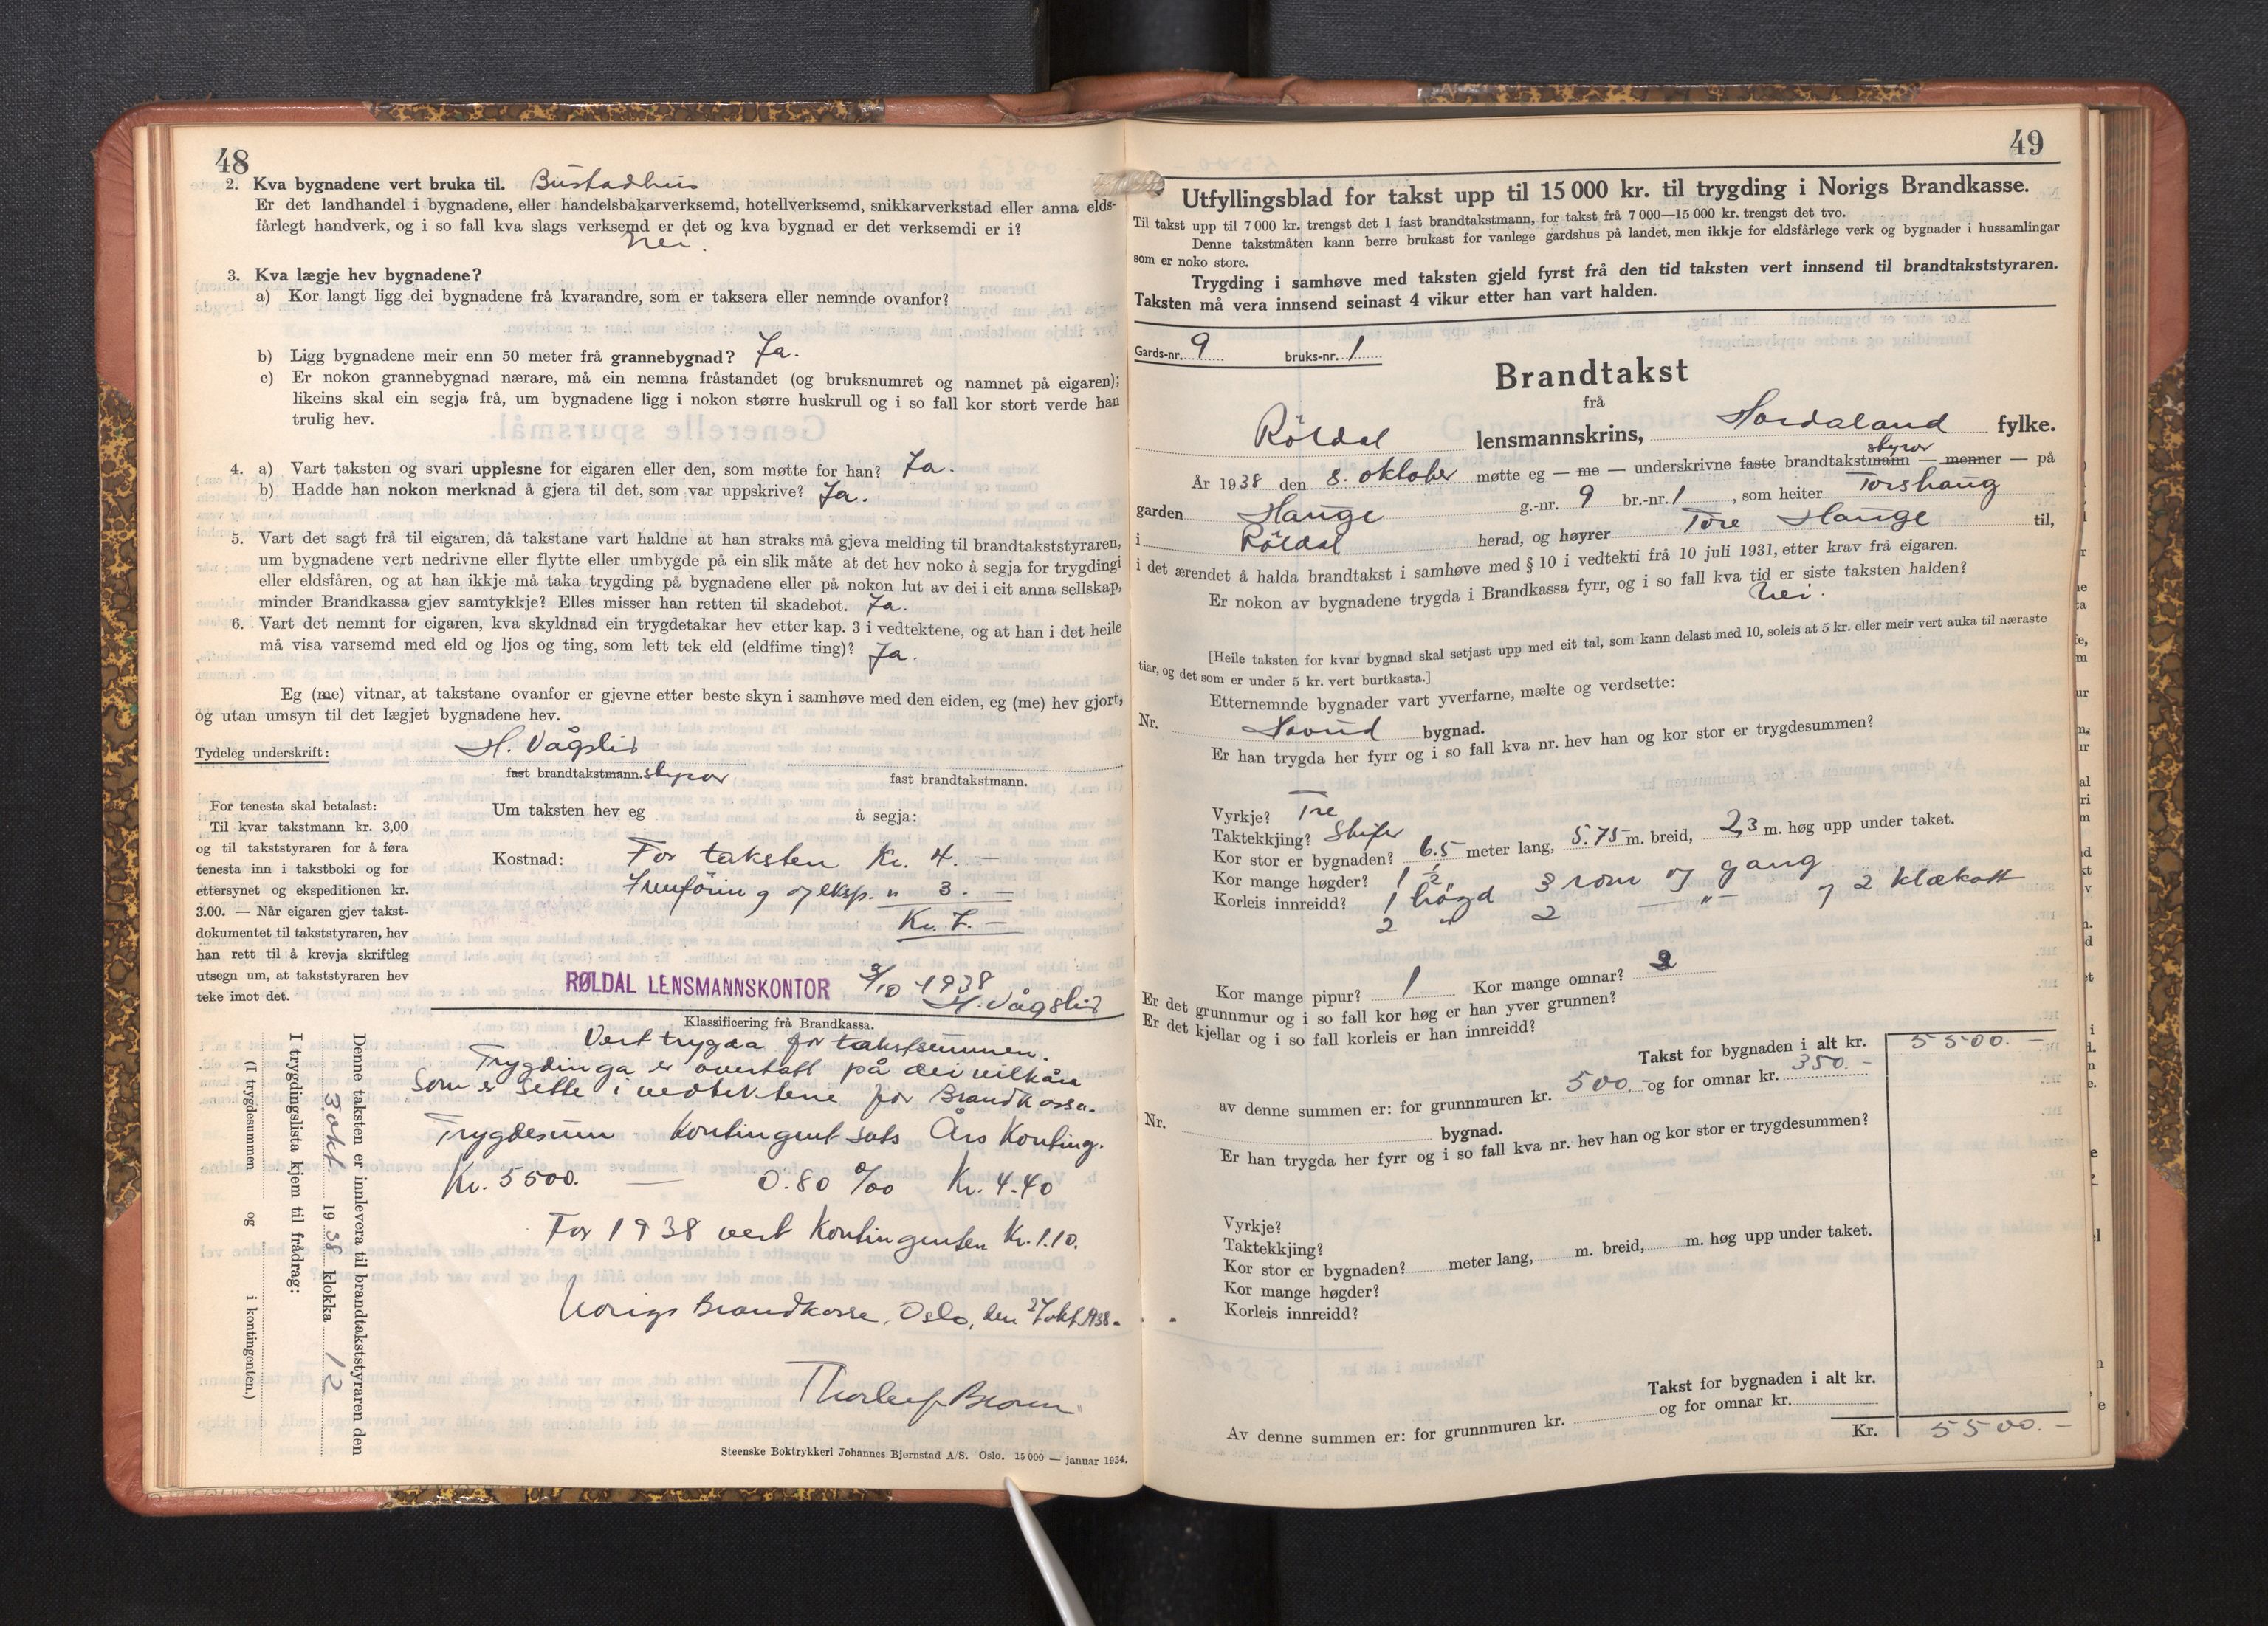 48
2. Kva bygnadene vert bruka til. Bustadhus
Er det landhandel i bygnadene, eller handelsbakarverksemd, hotellverksemd, snikkarverkstad eller anna elds-
fårlegt handverk, og i so fall kva slags verksemd er det og kva bygnad er det verksemdi er i?
Nei.
3. Kva lægje hev bygnadene?
a) Kor langt ligg dei bygnadene frå kvarandre, som er taksera eller nemnde ovanfor?
b) Ligg bygnadene meir enn 50 meter frå grannebygnad? Ja.
c) Er nokon grannebygnad nærare, må ein nemna fråstandet (og bruksnumret og namnet på eigaren);
likeins skal ein segja frå, um bygnadene ligg i nokon større huskrull og i so fall kor stort verde han
trulig hev.
4. a) Vart taksten og svari upplesne for eigaren eller den, som møtte for han? Ja.
b) Hadde han nokon merknad å gjera til det, som var uppskrive? Ja.
5. Vart det sagt frå til eigaren, då takstane vart haldne at han straks må gjeva melding til brandtakststyraren,
um bygnadene vert nedrivne eller flytte eller umbygde på ein slik måte at det hev noko å segja for trygdingi
eller eldsfåren, og at han ikkje må taka trygding på bygnadene eller på nokon lut av dei i eit anna sellskap,
minder Brandkassa gjev samtykkje? Elles misser han retten til skadebot. Ja.
6. Vart det nemnt for eigaren, kva skyldnad ein trygdetakar hev etter kap. 3 i vedtektene, og at han i det heile
må visa varsemd med eld og ljos og ting, som lett tek eld (eldfime ting)? Ja.
Eg (me) vitnar, at takstane ovanfor er gjevne etter beste skyn i samhøve med den eiden, eg (me) hev gjort,
og utan umsyn til det lægjet bygnadene hev.
Tydeleg underskrift: H. Vågslid
fast brandtakstmann. styrar fast brandtakstmann.
For tenesta skal betalast:
Til kvar takstmann kr. 3,00
og til takststyraren for å føra
tenesta inn i takstboki og for
ettersynet og ekspeditionen kr.
3.00. — Når eigaren gjev takst-
dokumentet til takststyraren, hev
han rett til å krevja skriftleg
utsegn um, at takststyraren hev
teke imot det.
Um taksten hev eg å segja:
Kostnad: For taksten Kr. 4. —
Innföring og eksp. " 3. —
Kr. 7. —
RØLDAL LENSMANNSKONTOR 3/10 - 1938
H. Vågslid
Klassificering frå Brandkassa.
Vert trygda for takstsummen.
Trygdinga er overtatt på dei vilkåra
som er sette i vedtektene for Brandkassa.
Trygdesum Kontingent sats Års Konting.
Kr. 5500. — 0.80 ‰ Kr. 4.40
For 1938 vert Kontingenten Kr. 1.10.
Norigs Brandkasse, Oslo, den 27 okt 1938.
Denne taksten er innlevera til brandtakststyraren den
3 okt. 1938 klokka 12
I trygdingslista kjem til frådrag:
(I trygdesummen og i kontingenten.)
Steenske Boktrykkeri Johannes Bjørnstad A/S. Oslo. 15 000 — januar 1934.
49
Utfyllingsblad for takst upp til 15 000 kr. til trygding i Norigs Brandkasse.
Til takst upp til 7 000 kr. trengst det 1 fast brandtakstmann, for takst frå 7 000—15 000 kr. trengst det tvo.
Denne takstmåten kann berre brukast for vanlege gardshus på landet, men ikkje for eldsfårlege verk og bygnader i hussamlingar
som er noko store.
Trygding i samhøve med taksten gjeld fyrst frå den tid taksten vert innsend til brandtakststyraren.
Taksten må vera innsend seinast 4 vikur etter han vart halden.
Gards-nr. 9 bruks-nr. 1
Brandtakst
frå
Röldal lensmannskrins, Hordaland fylke.
styrar
År 1938 den 8. oktober møtte eg — me — underskrivne faste brandtakstmann — menner — på
garden Hauge g.-nr. 9 br.-nr. 1, som heiter Torshaug
i Röldal herad, og høyrer Tore Hauge til,
i det ærendet å halda brandtakst i samhøve med § 10 i vedtekti frå 10 juli 1931, etter krav frå eigaren.
Er nokon av bygnadene trygda i Brandkassa fyrr, og i so fall kva tid er siste taksten halden?
Nei.
[Heile taksten for kvar bygnad skal setjast upp med eit tal, som kann delast med 10, soleis at 5 kr. eller meir vert auka til næraste
tiar, og det som er under 5 kr. vert burtkasta.]
Etternemnde bygnader vart yverfarne, mælte og verdsette:
Nr. Hovud bygnad.
Er han trygda her fyrr og i so fall kva nr. hev han og kor stor er trygdesummen?
Vyrkje? Tre
Taktekkjing? Skifer
Kor stor er bygnaden? 6.5 meter lang, 5.75 m. breid, 2,3 m. høg upp under taket.
Kor mange høgder? 1 1/2
Korleis innreidd? 1 högd 3 rom og gang
2 " 2 — " — og 2 klækott
Kor mange pipur? 1 Kor mange omnar?
Er det grunnmur og i so fall kor høg er han yver grunnen?
Er det kjellar og i so fall korleis er han innreidd?
Takst for bygnaden i alt kr. 5500. —
av denne summen er: for grunnmuren kr. 500. — og for omnar kr. 350. —
Nr. bygnad.
Er han trygda her fyrr og i so fall kva nr. hev han og kor stor er trygdesummen?
Vyrkje?
Taktekkjing?
Kor stor er bygnaden? meter lang, m. breid, m. høg upp under taket.
Kor mange høgder?
Korleis innreidd?
Takst for bygnaden i alt kr.
Av denne summen er: for grunnmuren kr. og for omnar kr.
Kr. 5500. —